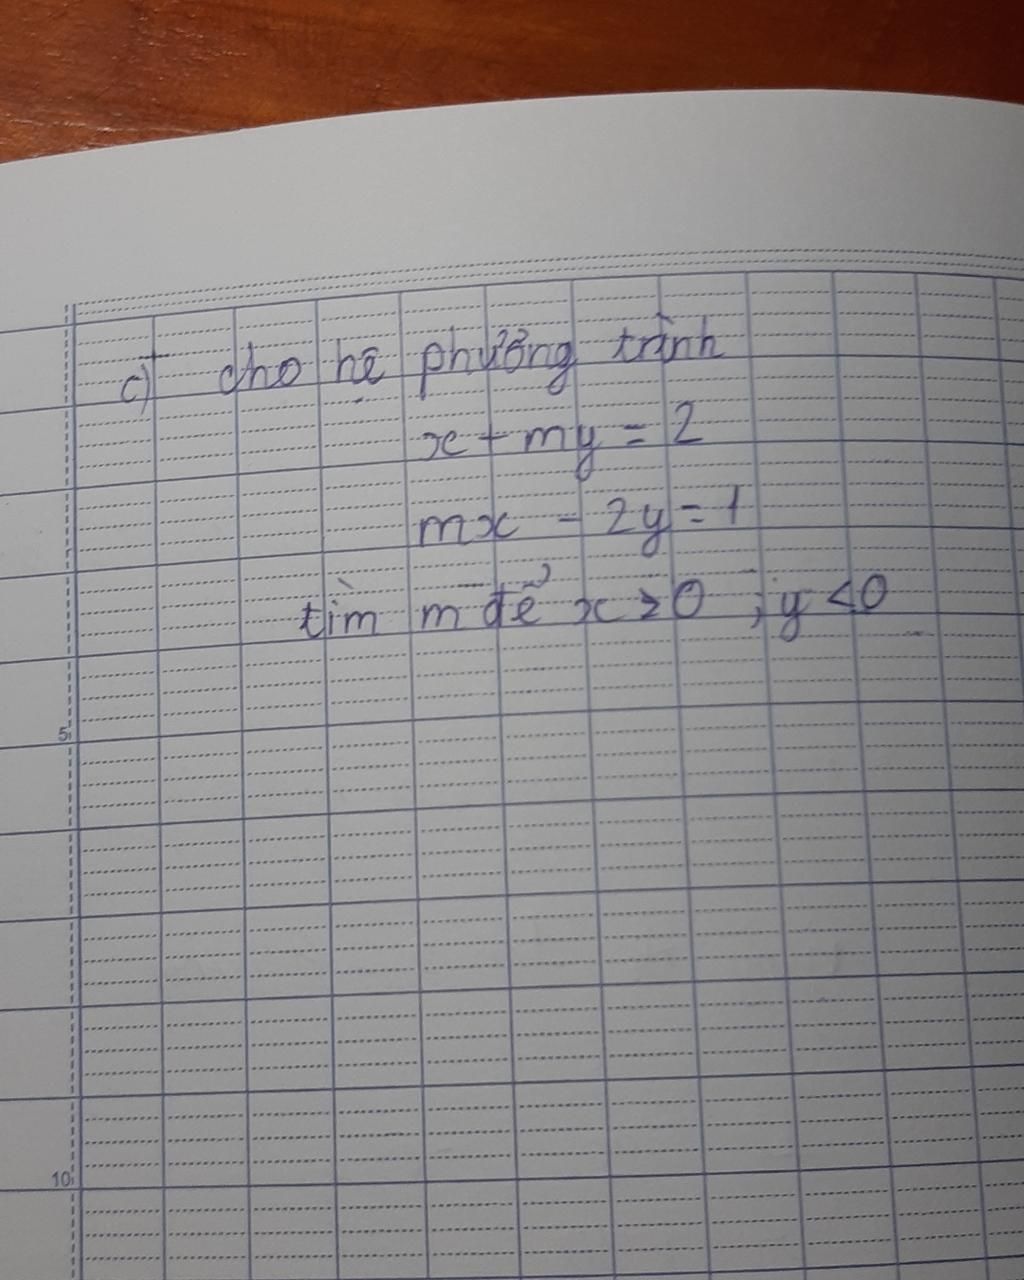 c) cho hệ phương trình
x + my = 2
mx - 2y = 1
tìm m để x ≥ 0 ; y < 0
5
10